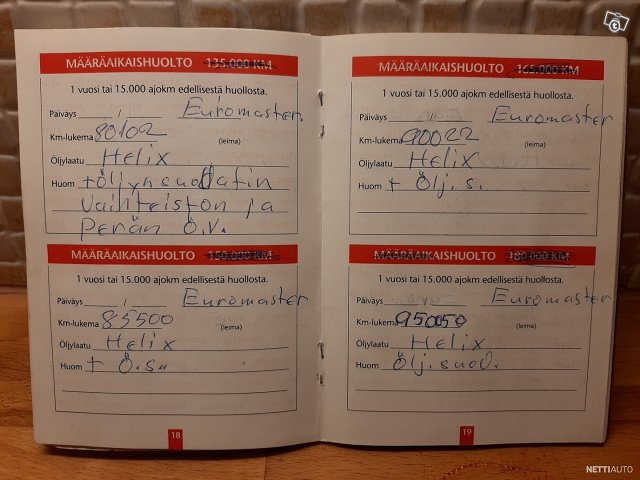 MÄÄRÄAIKAISHUOLTO 135.000 KM
1 vuosi tai 15.000 ajokm edellisestä huollosta.
Päiväys / Euromaster.
Km-lukema 80102 (leima)
Öljylaatu Helix
Huom +öljynsuodatin
Vaihteiston ja
Perän Ö.V.
MÄÄRÄAIKAISHUOLTO 150.000 KM
1 vuosi tai 15.000 ajokm edellisestä huollosta.
Päiväys / Euromaster
Km-lukema 85500 (leima)
Öljylaatu Helix
Huom + Ö.s.
18
MÄÄRÄAIKAISHUOLTO 165.000 KM
1 vuosi tai 15.000 ajokm edellisestä huollosta.
Päiväys Euromaster
Km-lukema 90022 (leima)
Öljylaatu Helix
Huom + Ölj.s.
MÄÄRÄAIKAISHUOLTO 180.000 KM
1 vuosi tai 15.000 ajokm edellisestä huollosta.
Päiväys Euromaster
Km-lukema 95050 (leima)
Öljylaatu Helix
Huom Ölj.suod.
19
NETTIAUTO